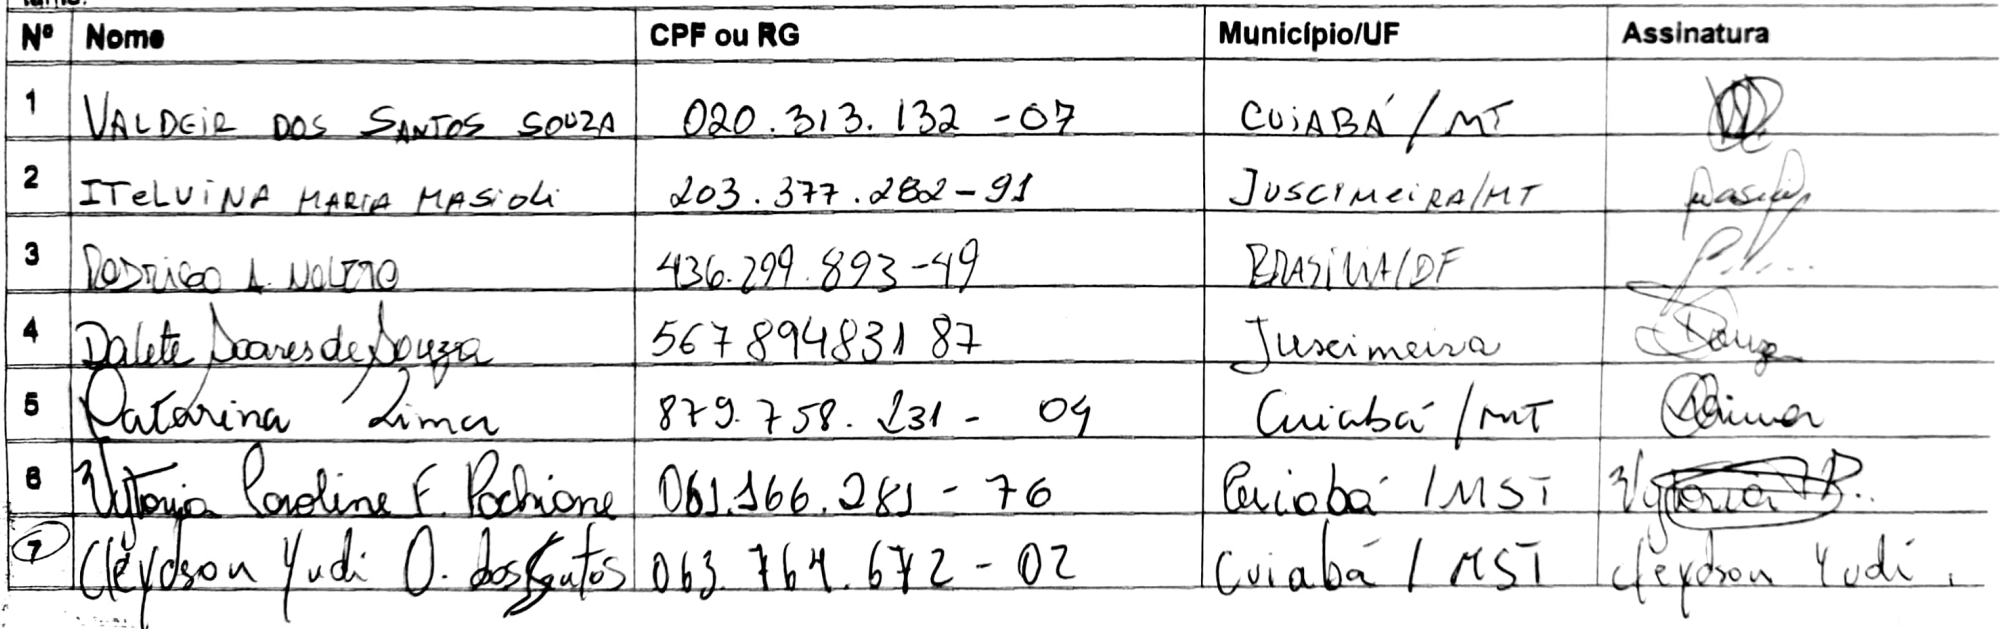 Nº Nome CPF ou RG Município/UF Assinatura
1 VALDEIR DOS SANTOS SOUZA 020.313.132-07 CUIABÁ/MT
2 ITELVINA MARIA MASIOLI 203.377.282-91 JUSCIMEIRA/MT Masioli
3 RODRIGO A. NOLETO 436.299.893-49 BRASÍLIA/DF
4 Dalete Soares de Souza 567894831 87 Juscimeira DSouza
5 Catarina Lima 879.758.231-04 Cuiabá/MT Lima
6 Vytoria Caroline F. Pochione 061.166.281-76 Cuiabá/MST Vytoria
7 Cleydson Yudi O. dos Santos 063.764.672-02 Cuiabá/MST Cleydson Yudi.